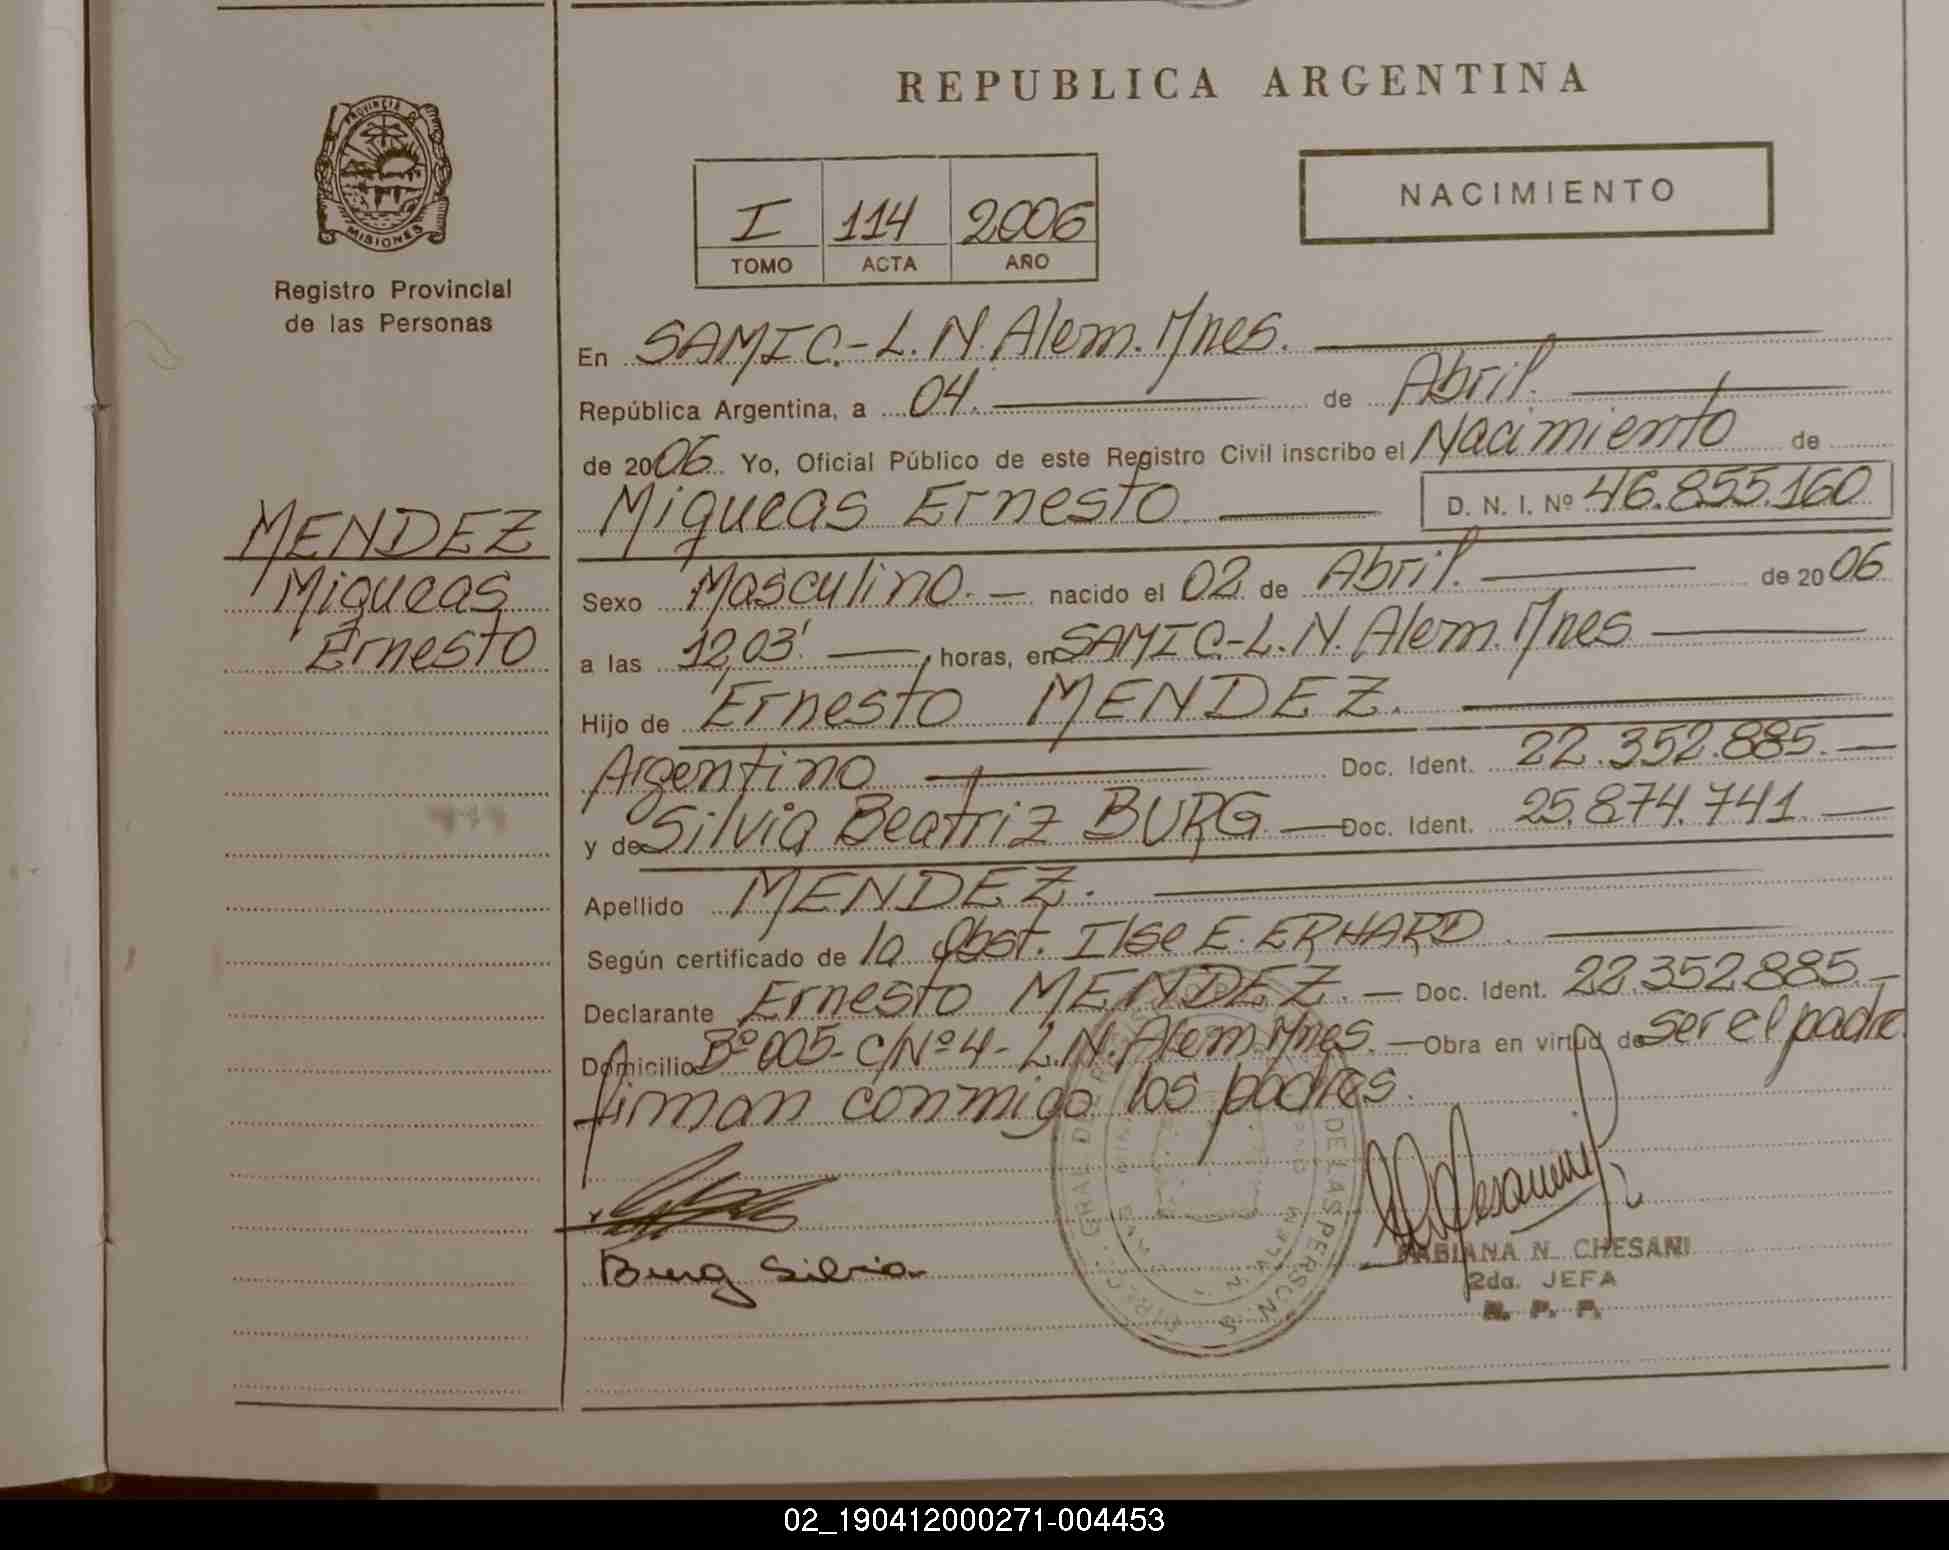 REPUBLICA ARGENTINA
PROVINCIA DE
MISIONES
Registro Provincial
de las Personas
I 114 2006
TOMO ACTA AÑO
NACIMIENTO
MENDEZ
Miqueas
Ernesto
En SAMIC.-L.N.Alem.Mnes.
República Argentina, a 04. de Abril.
de 2006 Yo, Oficial Público de este Registro Civil inscribo el Nacimiento de
Miqueas Ernesto D. N. I. Nº 46.855.160
Sexo Masculino. nacido el 02 de Abril. de 2006
a las 12,03' horas, en SAMIC.-L.N.Alem.Mnes
Hijo de Ernesto MENDEZ.
Argentino Doc. Ident. 22.352.885.-
y de Silvia Beatriz BURG Doc. Ident. 25.874.741.
Apellido MENDEZ.
Según certificado de la Obst. Ilse E. ERHARD
Declarante Ernesto MENDEZ. Doc. Ident. 22.352.885.-
Domicilio Bº 005- C/Nº 4- L.N.Alem.Mnes. Obra en virtud de ser el padre
firman conmigo los padres.
Burg Silvia
FABIANA N. CHESANI
2da. JEFA
R. P. P.
DE LAS PERSONAS
02_190412000271-004453